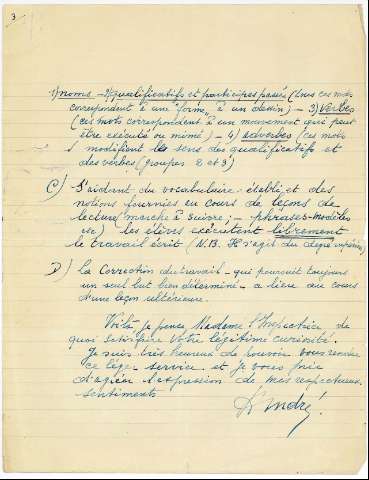 3
1) noms - 2) qualificatifs et participes passés (tous ces mots
correspondent à une "forme" à un dessin) - 3) Verbes
(ces mots correspondent à un mouvement qui peut
être exécuté ou mimé) - 4) adverbes (ces mots
modifient le sens des qualificatifs et
des verbes (groupes 2 et 3)
C) S'aidant du vocabulaire établi et des
notions fournies en cours de leçons de
lecture (marche à suivre, - phrases-modèles
etc) les élèves exécutent librement
le travail écrit (N.B. Il s'agit du degré supérieur)
D) La Correction du travail - qui poursuit toujours
un seul but bien déterminé - a lieu au cours
d'une leçon ultérieure.
Voilà je pense Madame l'Inspectrice de
quoi satisfaire votre légitime curiosité.
Je suis très heureux de pouvoir vous rendre
ce léger service et je vous prie
d'agréer l'expression de mes respectueux
sentiments